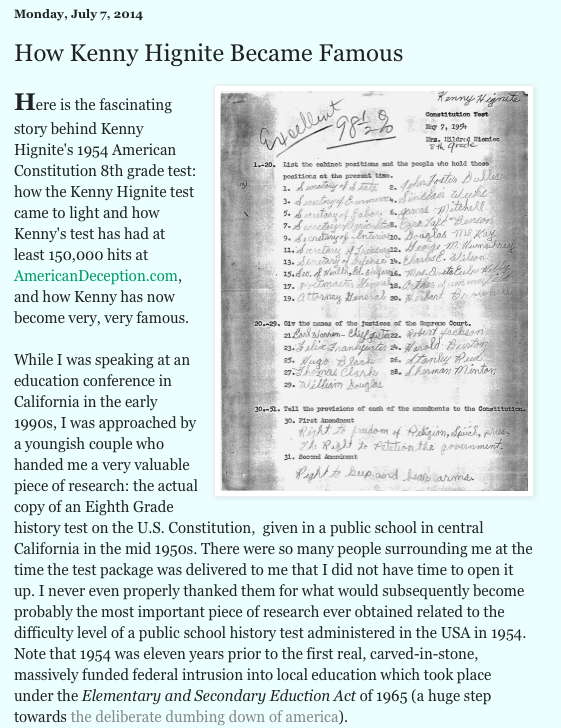 Monday, July 7, 2014
How Kenny Hignite Became Famous
Here is the fascinating
story behind Kenny
Hignite's 1954 American
Constitution 8th grade test:
how the Kenny Hignite test
came to light and how
Kenny's test has had at
least 150,000 hits at
AmericanDeception.com,
and how Kenny has now
become very, very famous.
While I was speaking at an
education conference in
California in the early
1990s, I was approached by
a youngish couple who
handed me a very valuable
piece of research: the actual
copy of an Eighth Grade
history test on the U.S. Constitution, given in a public school in central
California in the mid 1950s. There were so many people surrounding me at the
time the test package was delivered to me that I did not have time to open it
up. I never even properly thanked them for what would subsequently become
probably the most important piece of research ever obtained related to the
difficulty level of a public school history test administered in the USA in 1954.
Note that 1954 was eleven years prior to the first real, carved-in-stone,
massively funded federal intrusion into local education which took place
under the Elementary and Secondary Eduction Act of 1965 (a huge step
towards the deliberate dumbing down of america).
Kenny Hignite
Excellent
Constitution Test
May 7, 1954
Mrs. Mildred Niemiec
8th Grade
1.-20. List the cabinet positions and the people who hold these
positions at the present time.
1. Secretary of State 2. John Foster Dulles
3. Secretary of Commerce 4. Sinclair Weeks
5. Secretary of Labor 6. James Mitchell
7. Secretary of 8. Ezra Taft Benson
9. Secretary of Interior 10. Douglas McKay
11. Secretary of 12. George M. Humphrey
13. Secretary of Defense 14. Charles E. Wilson
15. Sec. of Health, 16. Mrs.
17. General 18. Arthur
19. Attorney General 20. Herbert Brownell
20.-29. Giv the names of the justices of the Supreme Court.
21. Earl Warren - Chief Justice 22. Robert Jackson
23. Felix Frankfurter 24. Harold Burton
25. Hugo Black 26. Stanley Reed
27. Thomas Clark 28. Sherman Minton
29. William Douglas
30.-51. Tell the provisions of each of the amendments to the Constitution.
30. First Amendment
Right to freedom of Religion, Speech, press.
The Right to Petition the government.
31. Second Amendment
Right to keep and bear arms.